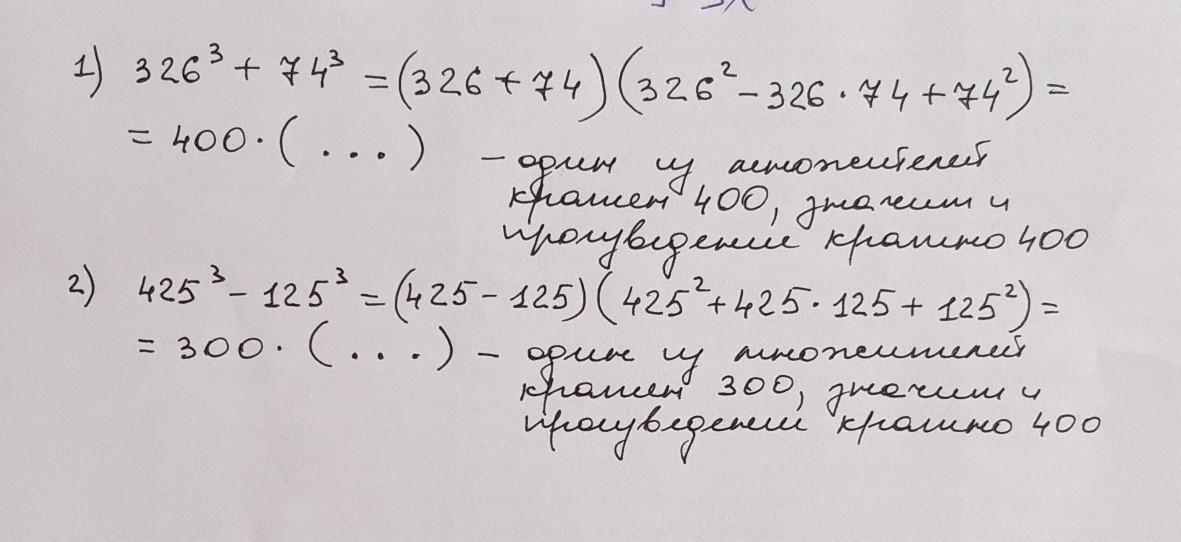 1) 326³ + 74³ = (326 + 74)(326² - 326 · 74 + 74²) =
= 400 · (...) - один из множителей
кратен 400, значит и
произведение кратно 400
2) 425³ - 125³ = (425 - 125)(425² + 425 · 125 + 125²) =
= 300 · (...) - один из множителей
кратен 300, значит и
произведение кратно 400